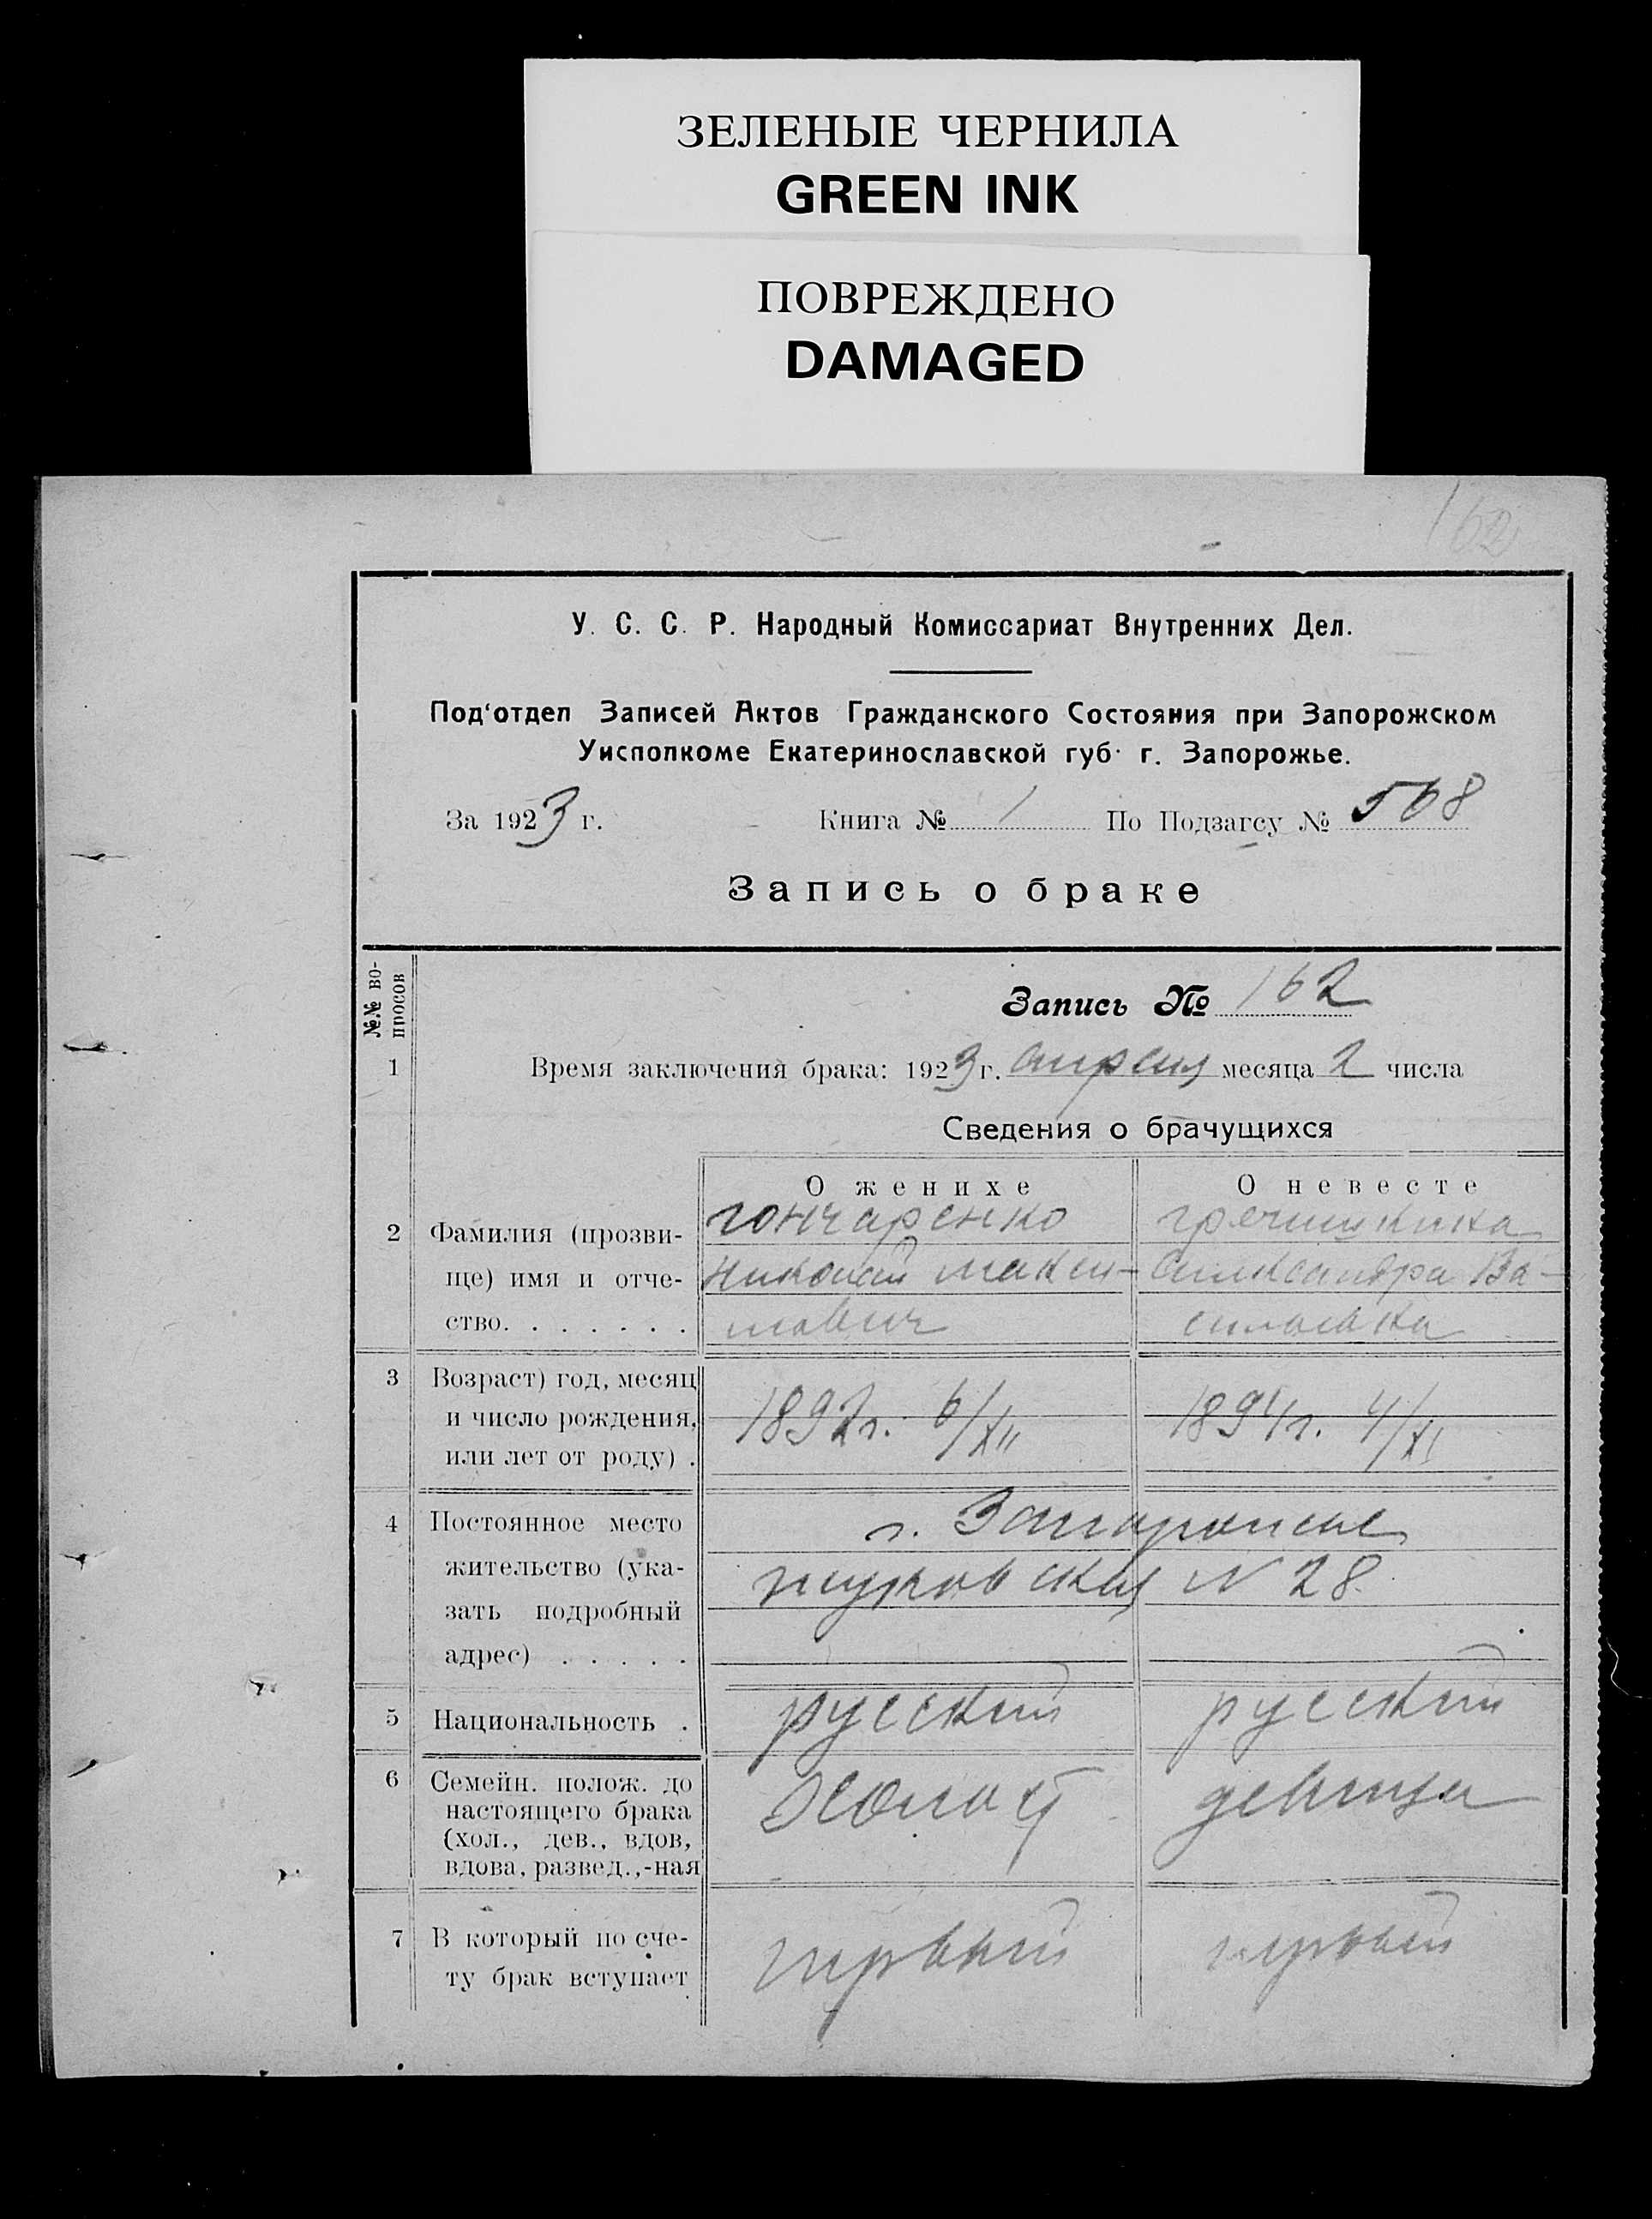 ЗЕЛЕНЫЕ ЧЕРНИЛА
GREEN INK
ПОВРЕЖДЕНО
DAMAGED
162
У. С. С. Р. Народный Комиссариат Внутренних Дел.
Под'отдел Записей Актов Гражданского Состояния при Запорожском
Уисполкоме Екатеринославской губ. г. Запорожье.
За 1923 г. Книга № 1 По Подзагсу № 568
Запись о браке
№№ во-
просов
Запись № 162
1 Время заключения брака: 1923 г. апреля месяца 2 числа
Сведения о брачущихся
О женихе О невесте
2 Фамилия (прозви- гончаренко гречишкина
ще) имя и отче- николай макси- александра Ва-
ство. . . . . . . мович сильевна
3 Возраст) год, месяц
и число рождения, 1892 г. 6/XII 1894 г. 4/XI
или лет от роду) .
4 Постоянное место г. Запорожье
жительство (ука- жуковская N 28
зать подробный
адрес) . . . . .
5 Национальность . русский русский
6 Семейн. полож. до холост девица
настоящего брака
(хол., дев., вдов,
вдова, развед.,-ная
7 В который по сче- первый первый
ту брак вступает